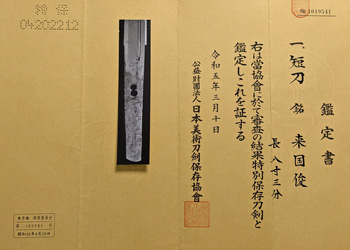 鑑定書
一、短刀 銘 来国俊
長 八寸三分
右は當協會に於て審査の結果特別保存刀剣と
鑑定しこれを証する
令和五年三月十日
公益財団法人日本美術刀剣保存協會
No 1019541
特保
04202212